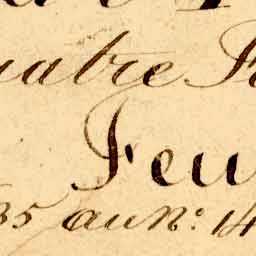 uatre F
Feu
35 au N.º 14